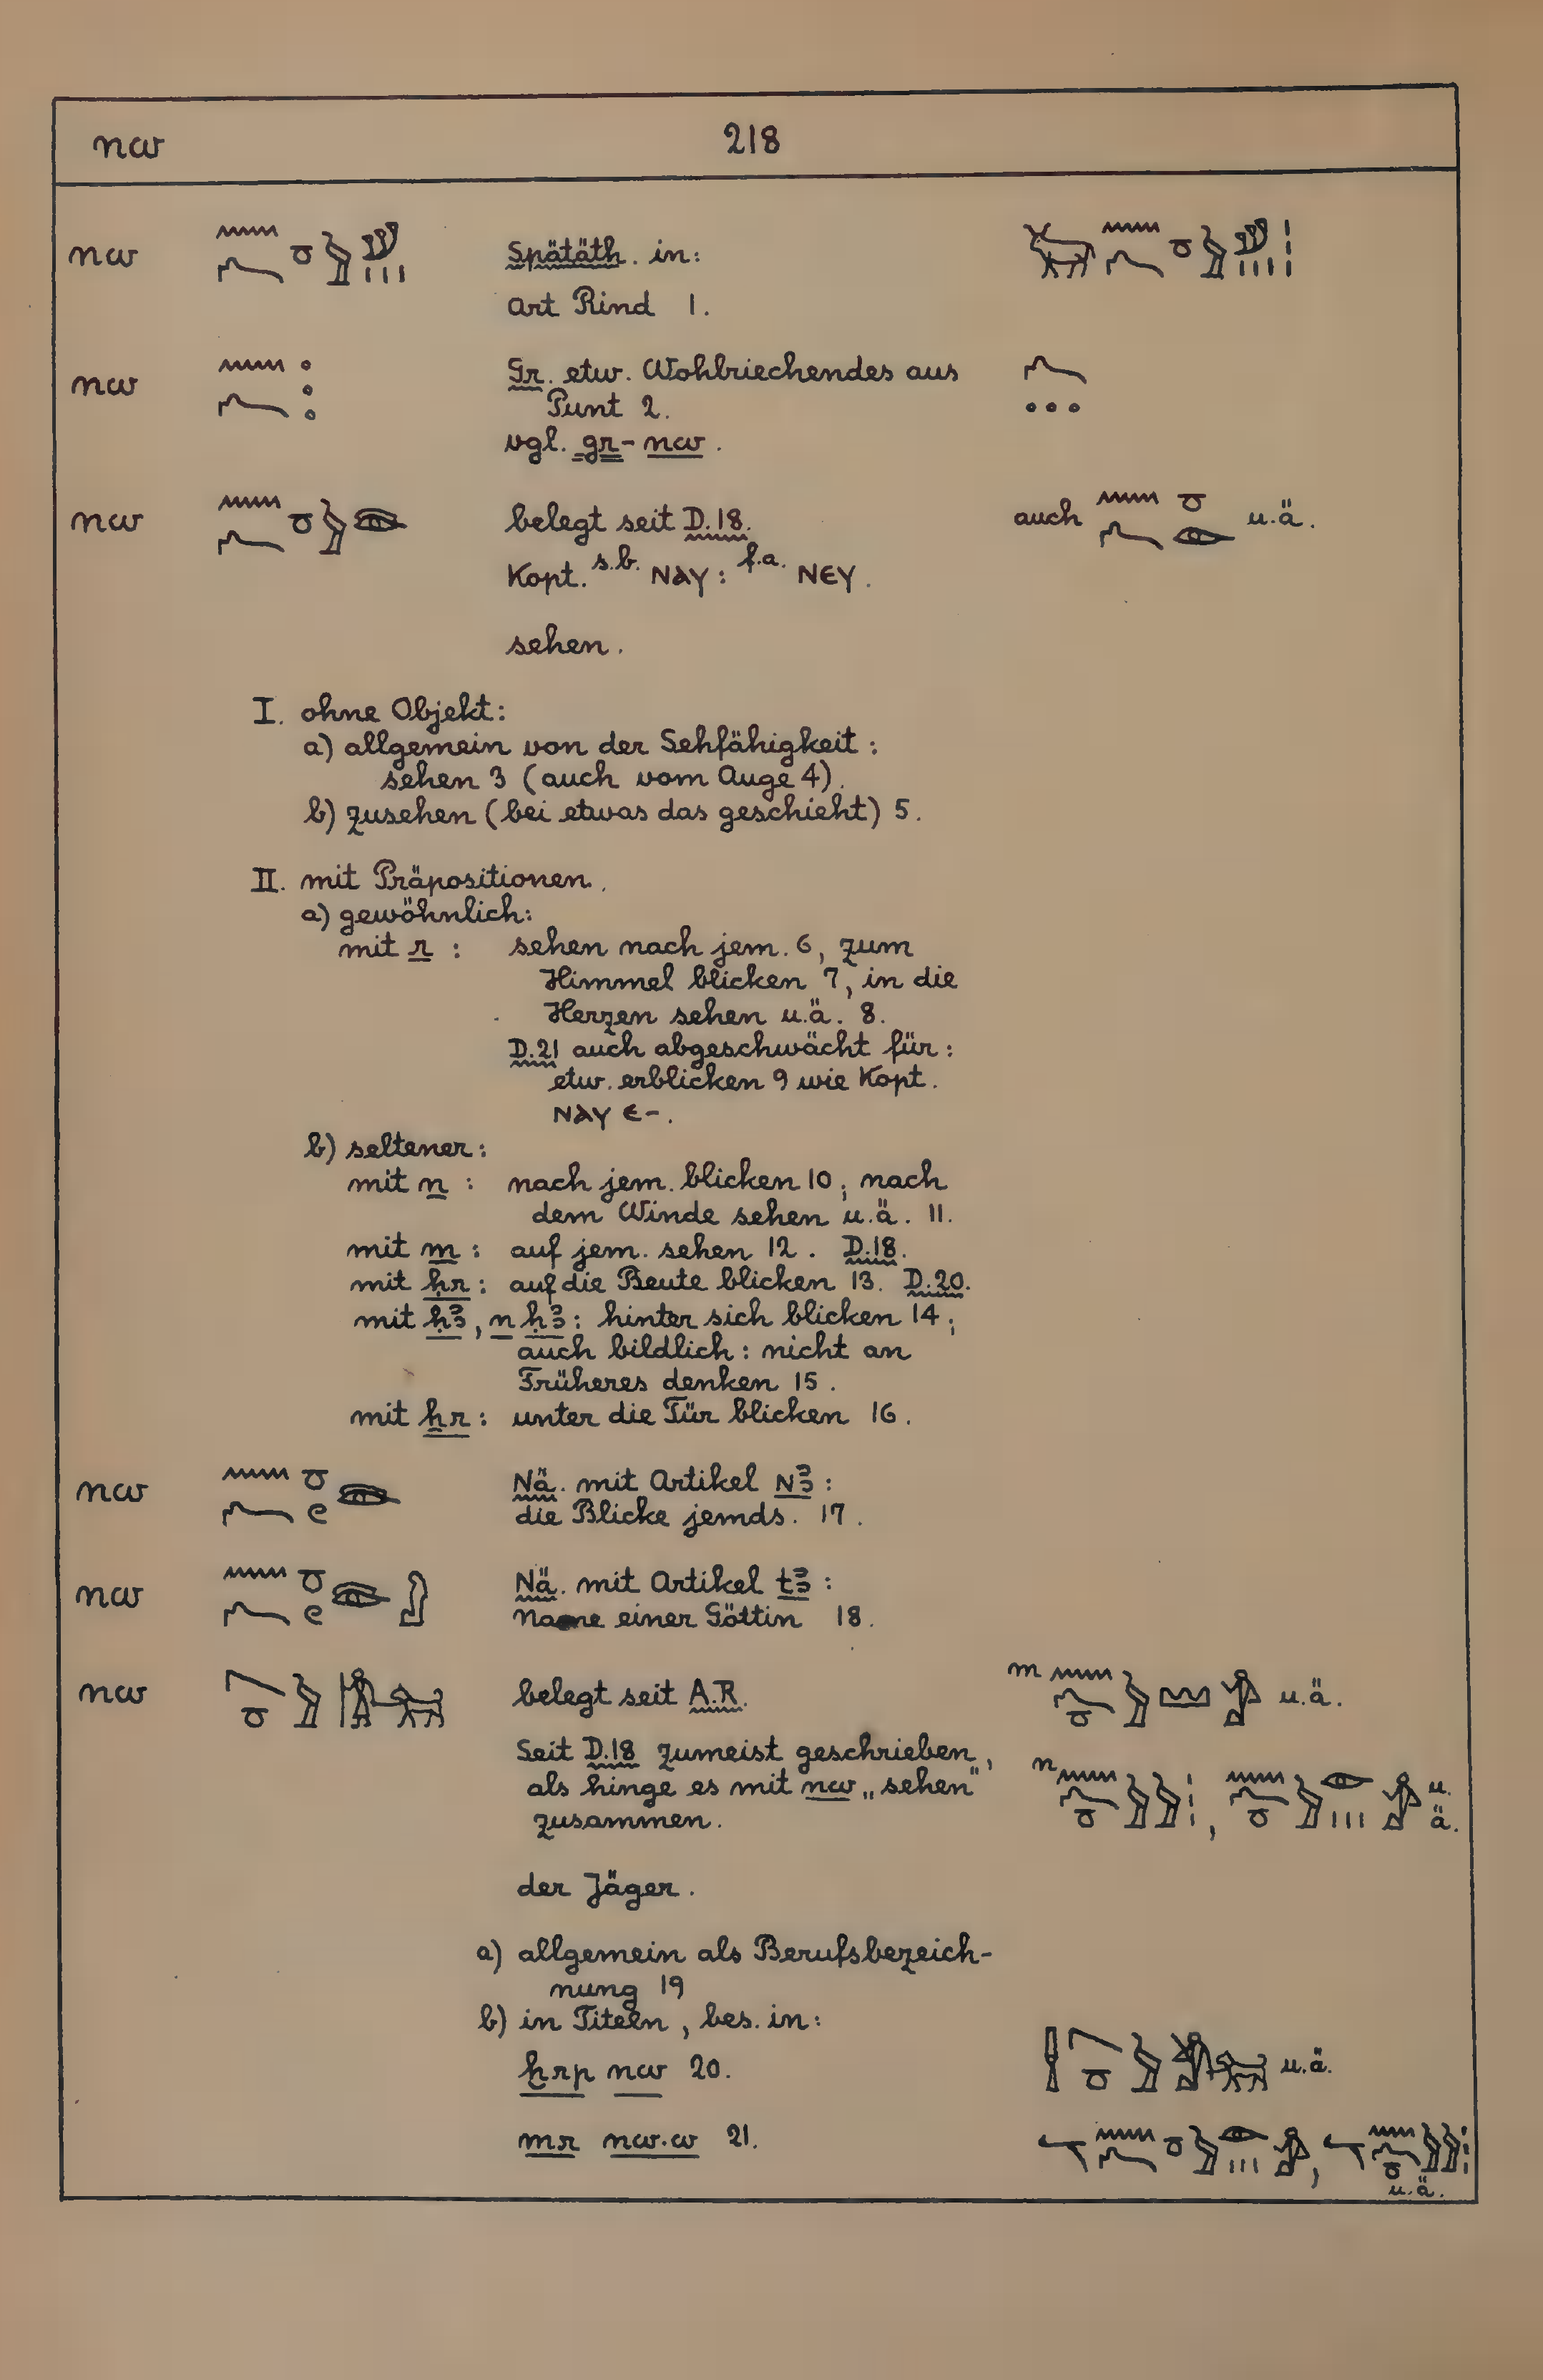 nw 218
nw Spätäth. in:
Art Rind 1.
nw Gr. etw. Wohlriechendes aus
Punt 2.
vgl. gr-nw.
nw belegt seit D.18. auch u.ä.
Kopt. s.b. ⲚⲀⲨ : f.a. ⲚⲈⲨ.
sehen.
I. ohne Objekt:
a) allgemein von der Sehfähigkeit:
sehen 3 (auch vom Auge 4).
b) zusehen (bei etwas das geschieht) 5.
II. mit Präpositionen.
a) gewöhnlich:
mit r : sehen nach jem. 6, zum
Himmel blicken 7, in die
Herzen sehen u.ä. 8.
D.21 auch abgeschwächt für:
etw. erblicken 9 wie Kopt.
ⲚⲀⲨ Ⲉ-.
b) seltener:
mit n : nach jem. blicken 10; nach
dem Winde sehen u.ä. 11.
mit m : auf jem. sehen 12. D.18.
mit ḥr : auf die Beute blicken 13. D.20.
mit ḥꜣ, n ḥꜣ : hinter sich blicken 14;
auch bildlich: nicht an
Früheres denken 15.
mit ẖr : unter die Tür blicken 16.
nw Nä. mit Artikel Nꜣ :
die Blicke jemds. 17.
nw Nä. mit Artikel tꜣ :
Name einer Göttin 18.
nw belegt seit A.R. m u.ä.
Seit D.18 zumeist geschrieben,
als hinge es mit nw „sehen" n u.
zusammen. ä.
der Jäger.
a) allgemein als Berufsbezeich-
nung 19
b) in Titeln, bes. in:
ḫrp nw 20. u.ä.
mr nw.w 21.
u.ä.